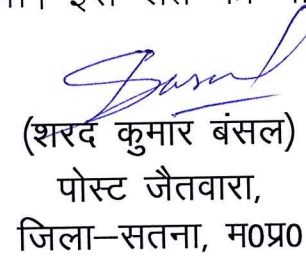 (शरद कुमार बंसल)
पोस्ट जैतवारा,
जिला–सतना, म0प्र0